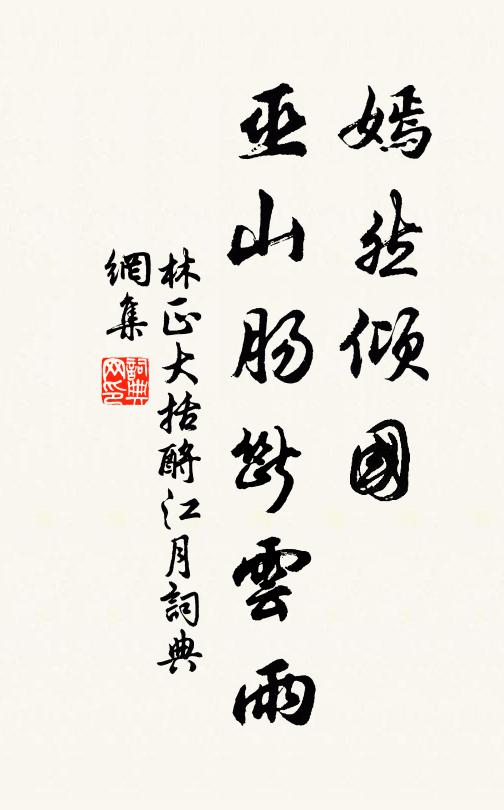 嫣然傾國
巫山腸斷雲雨
林正大括酹江月詞典
網集
詞典
网印